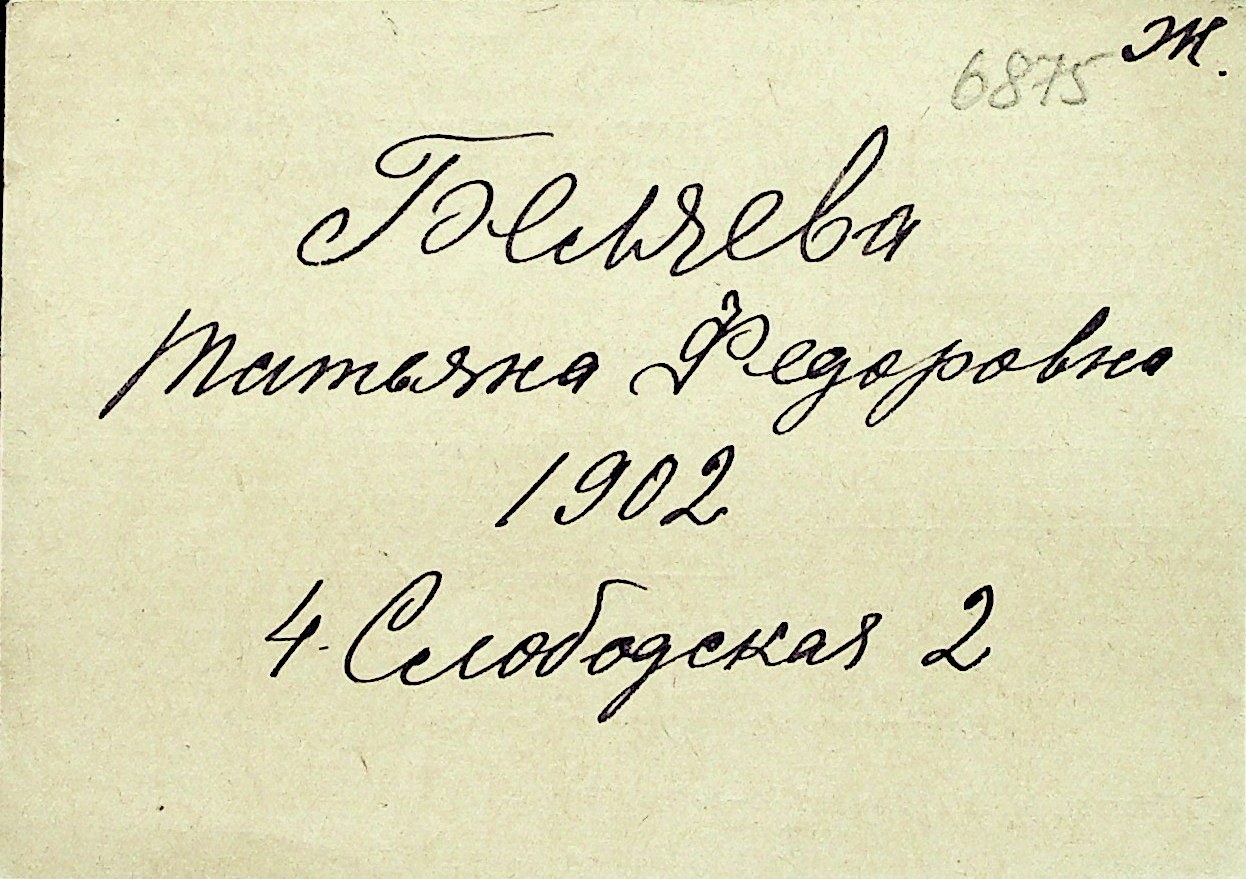 6875 Ж.
Беляева
Татьяна Федоровна
1902
4-Слободская 2